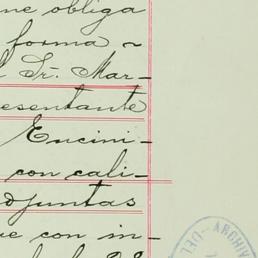 me obliga
forma ~
Sr. Mar-
esentante
Encini-
con cali-
adjuntas
ue con in-
DEL - ARCHIV